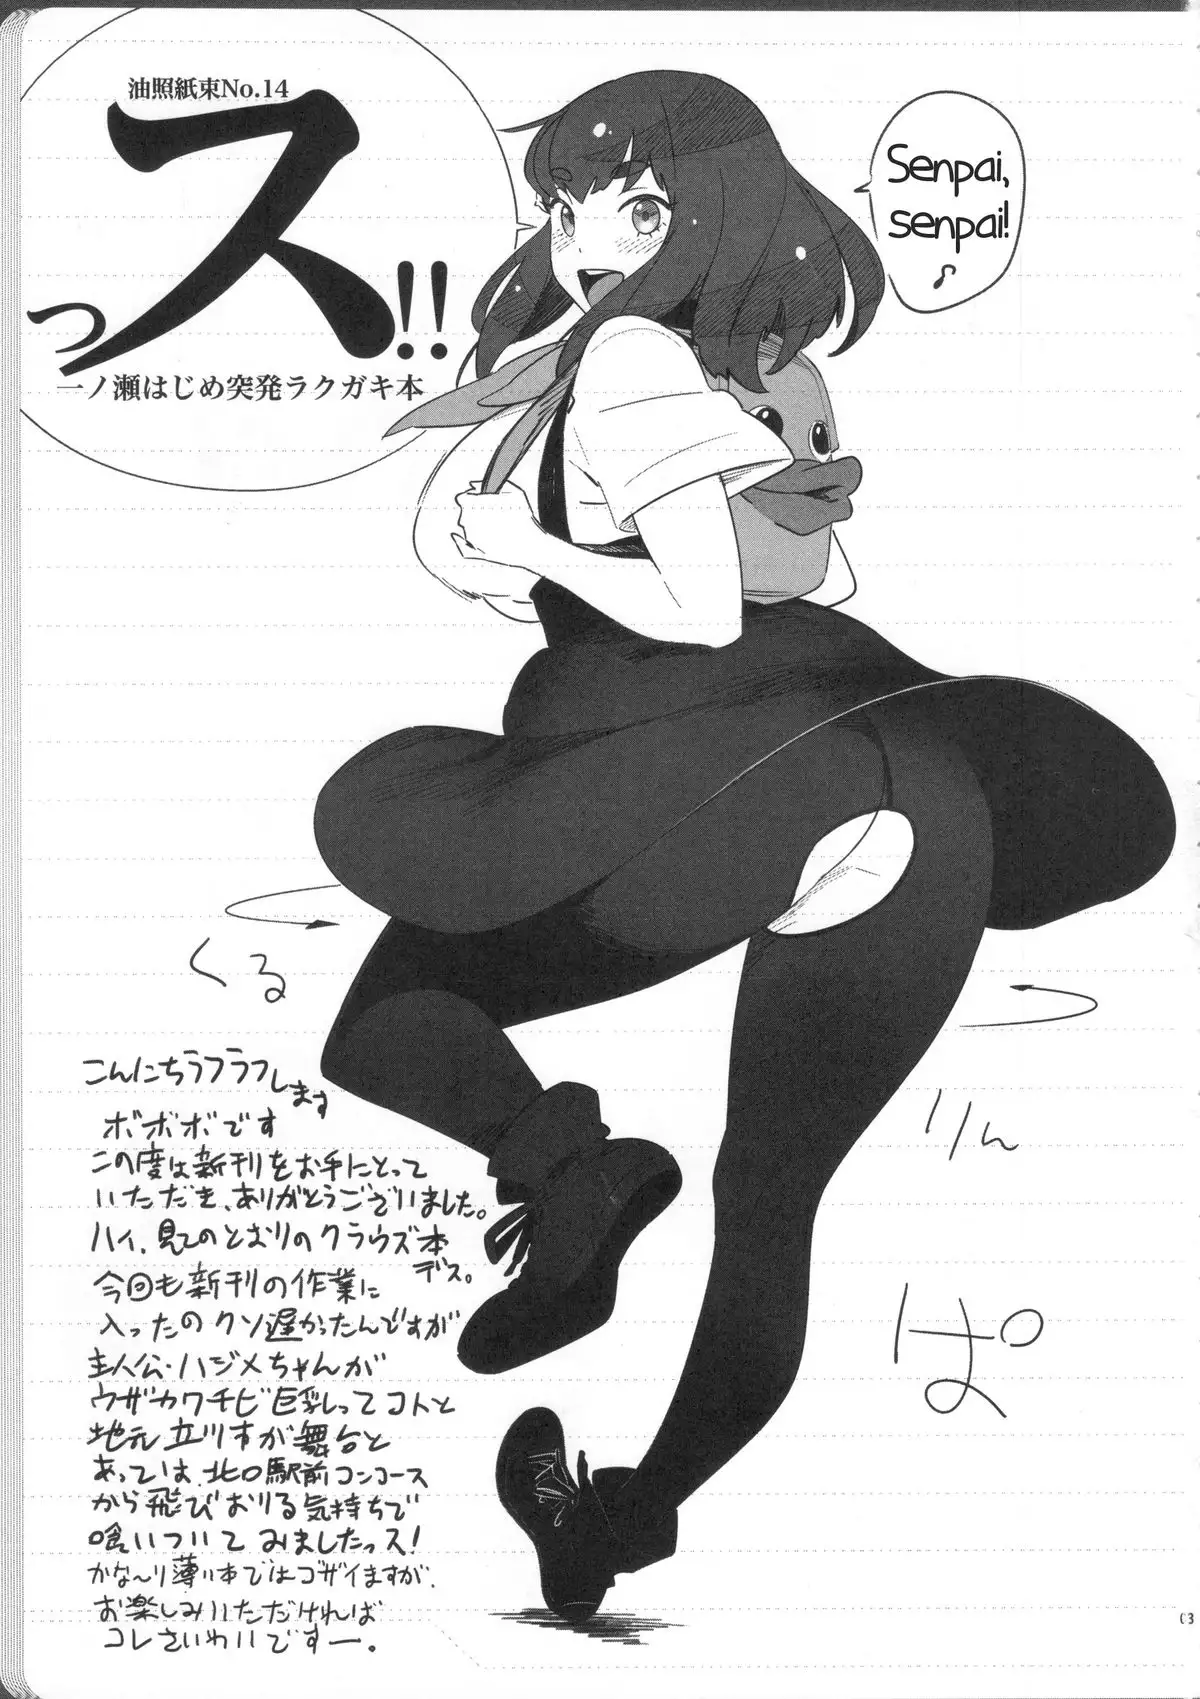 油照紙束No.14
スっ!!
一ノ瀬はじめ突発ラクガキ本
Senpai,
senpai!
くる
りん
ぱ
こんにちラフラフします
ボボボです
この度は新刊をお手にとって
いただき、ありがとうございました。
ハイ、見てのとおりのクラウズ本
デス。
今回も新刊の作業に
入ったのクソ遅かったんですが
主人公・ハジメちゃんが
ウザカワチビ巨乳ってコトと
地元立川市が舞台と
あっては、北口駅前コンコース
から飛びおりる気持ちで
喰いついてみましたっス!
かな〜り薄い本ではゴザイますが、
お楽しみいただければ
コレさいわいですー。
03